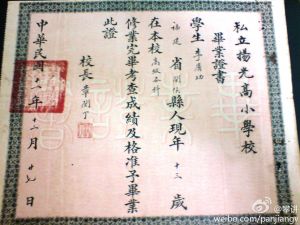 私立揚光高小學校
畢業證書
學生
福建省閩侯縣人現年十三歲
在本校高級本科
修業完畢考查成績及格准予畢業
此證
校長
中華民國十二年十二月 日
weibo.com/panjiangv